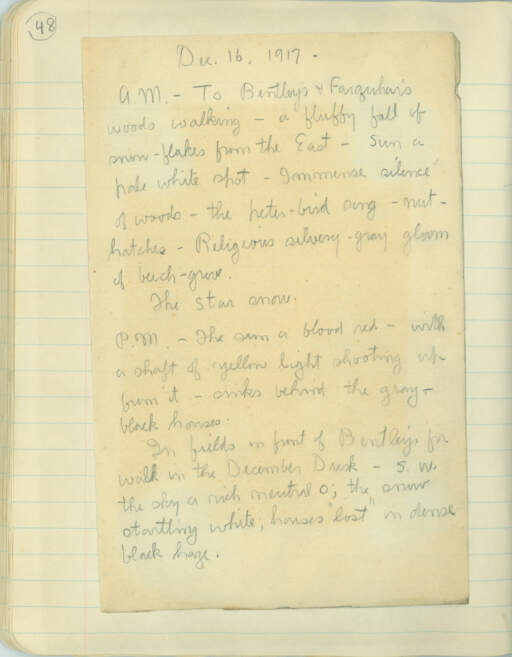 48
Dec. 16, 1917 -
A.M. - To Bentleys & Farquhar's
woods walking - a fluffy fall of
snow-flakes from the East - Sun a
pale white spot - Immense silence
of woods - the peter-bird song - nut-
hatches - Religious silvery-gray gloom
of beech-grove.
The star snow.
P.M. - The sun a blood red - with
a shaft of yellow light shooting up
from it - sinks behind the gray-
black houses.
In fields in front of Bentleys for
walk in the December Dusk - S. W.
the sky a rich neutral O; the snow
startling white; houses "lost" in dense
black haze.